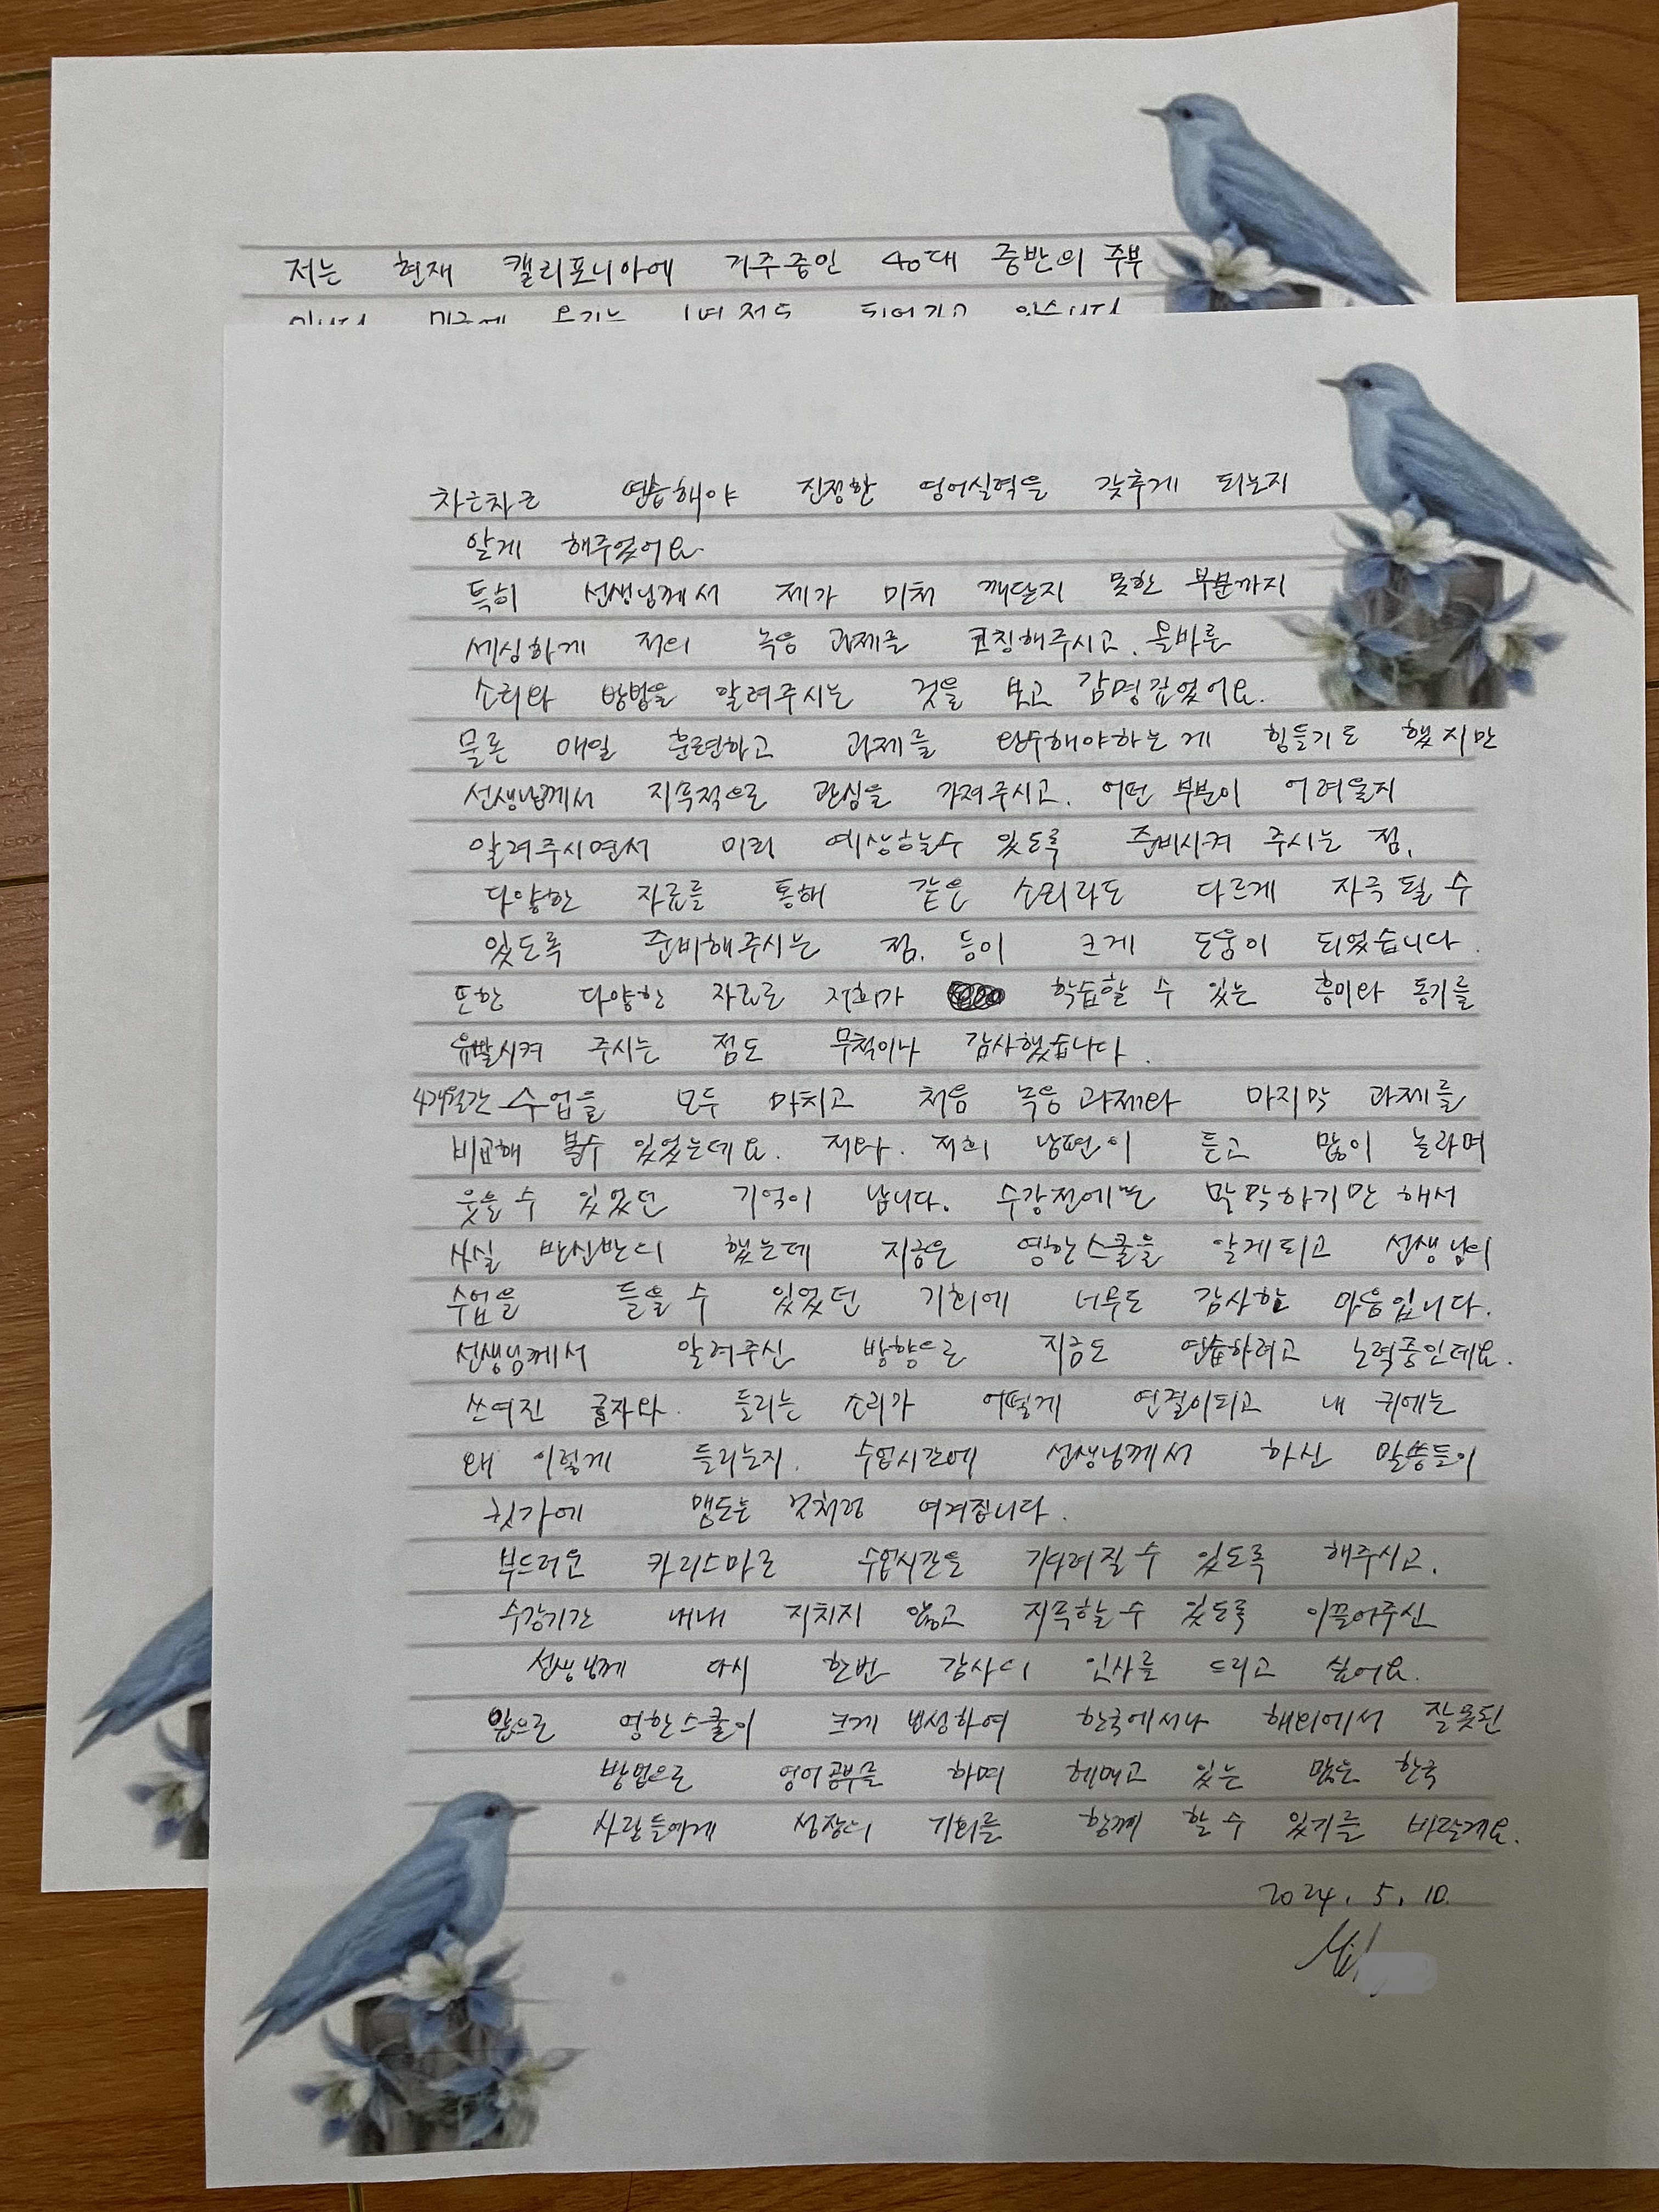 저는 현재 캘리포니아에 거주중인 40대 중반의 주부
입니다. 미국에 온지는 1년 정도 되어가고 있습니다
차근차근 연습해야 진정한 영어실력을 갖추게 되는지
알게 해주었어요.
특히 선생님께서 제가 미처 깨닫지 못한 부분까지
세심하게 저의 녹음 과제를 코칭해주시고, 올바른
소리와 방법을 알려주시는 것을 보고 감명깊었어요.
물론 매일 훈련하고 과제를 완수해야하는게 힘들기도 했지만
선생님께서 지속적으로 관심을 가져주시고, 어떤 부분이 어려울지
알려주시면서 미리 예상할수 있도록 준비시켜 주시는 점,
다양한 자료를 통해 같은 소리라도 다르게 자극 될 수
있도록 준비해주시는 점, 등이 크게 도움이 되었습니다.
또한 다양한 자료로 저희가 학습할 수 있는 흥미와 동기를
유발시켜 주시는 점도 무척이나 감사했습니다.
4개월간 수업을 모두 마치고 처음 녹음 과제와 마지막 과제를
비교해 볼수 있었는데요. 저와, 저희 남편이 듣고 많이 놀라며
웃을 수 있었던 기억이 납니다. 수강전에는 막막하기만 해서
사실 반신반의 했는데 지금은 영한스쿨을 알게되고 선생님의
수업을 들을 수 있었던 기회에 너무도 감사한 마음입니다.
선생님께서 알려주신 방향으로 지금도 연습하려고 노력중인데요.
쓰여진 글자와 들리는 소리가 어떻게 연결이되고 내 귀에는
왜 이렇게 들리는지, 수업시간에 선생님께서 하신 말씀들이
귓가에 맴도는 것처럼 여겨집니다.
부드러운 카리스마로 수업시간을 기다려질 수 있도록 해주시고,
수강기간 내내 지치지 않고 지속할 수 있도록 이끌어주신
선생님께 다시 한번 감사의 인사를 드리고 싶어요.
앞으로 영한스쿨이 크게 번성하여 한국에서나 해외에서 잘못된
방법으로 영어공부를 하며 헤매고 있는 많은 한국
사람들에게 성장의 기회를 함께 할 수 있기를 바랄게요.
2024. 5. 10.